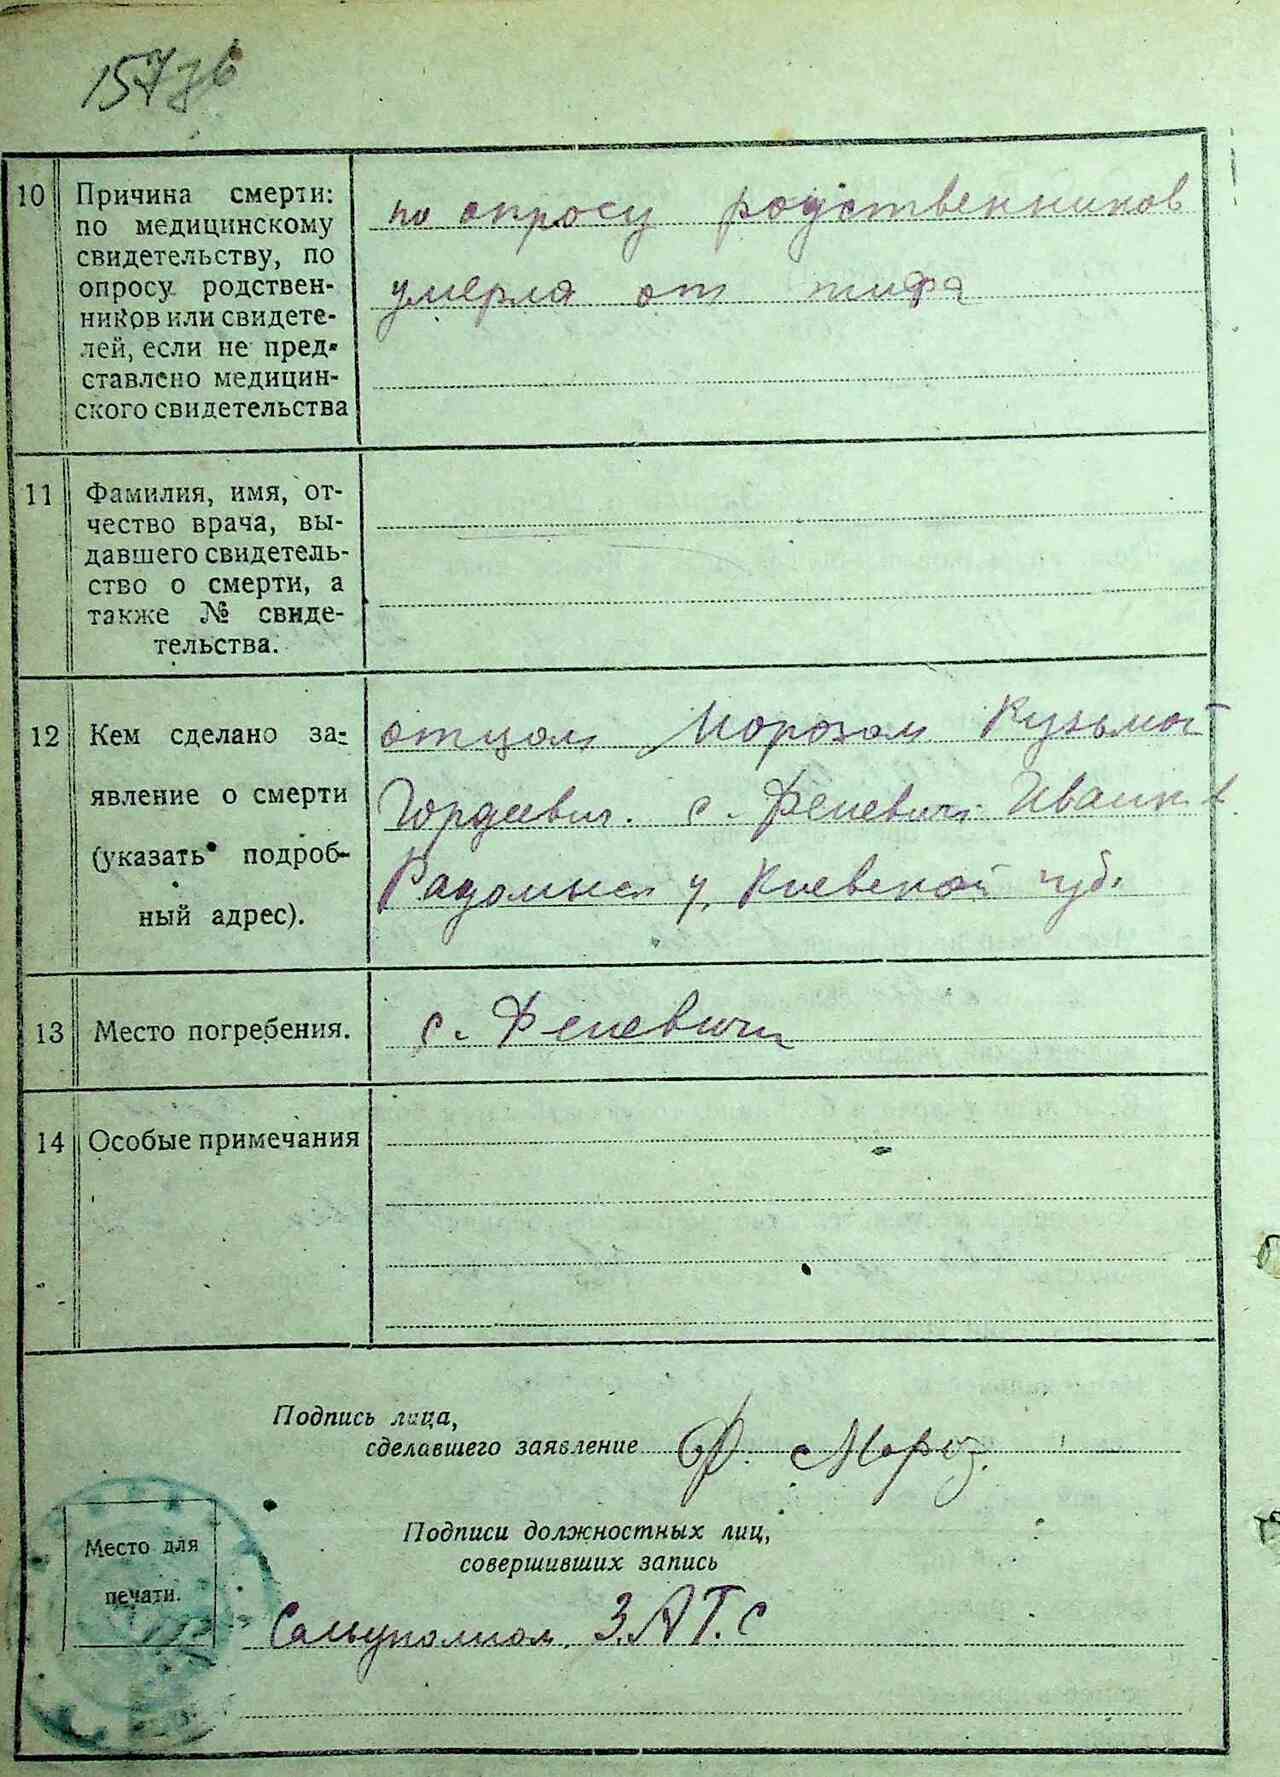 10 Причина смерти:
по медицинскому
свидетельству, по
опросу родствен-
ников или свидете-
лей, если не пред-
ставлено медицин-
ского свидетельства
по опросу родственников
умерла от тифа
11 Фамилия, имя, от-
чество врача, вы-
давшего свидетель-
ство о смерти, а
также № свиде-
тельства.
12 Кем сделано за-
явление о смерти
(указать подроб-
ный адрес).
отцом Морозом Кузьмой
Гордеевич. с. Феневичи
Радомысл у, Киевской губ.
13 Место погребения.
с. Феневичи
14 Особые примечания
Подпись лица,
сделавшего заявление Ф. Мороз.
Место для
печати.
Подписи должностных лиц,
совершивших запись
З.АГ.С